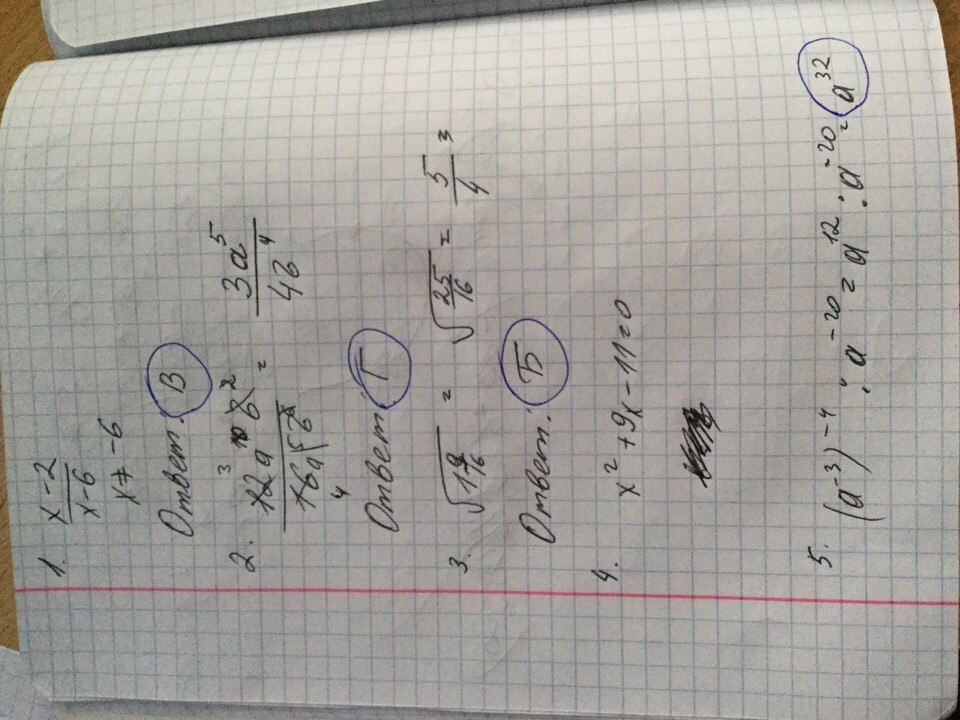 1. x-2/x-6
x ≠ -6
Ответ: В
2. 12a¹⁰b²/16a⁵b⁶ = 3a⁵/4b⁴
3 4
Ответ: Г
3. √1 9/16 = √25/16 = 5/4 =
Ответ: Б
4. x² + 9x - 11 = 0
5. (a⁻³)⁻⁴ : a⁻²⁰ = a¹² : a⁻²⁰ = a³²